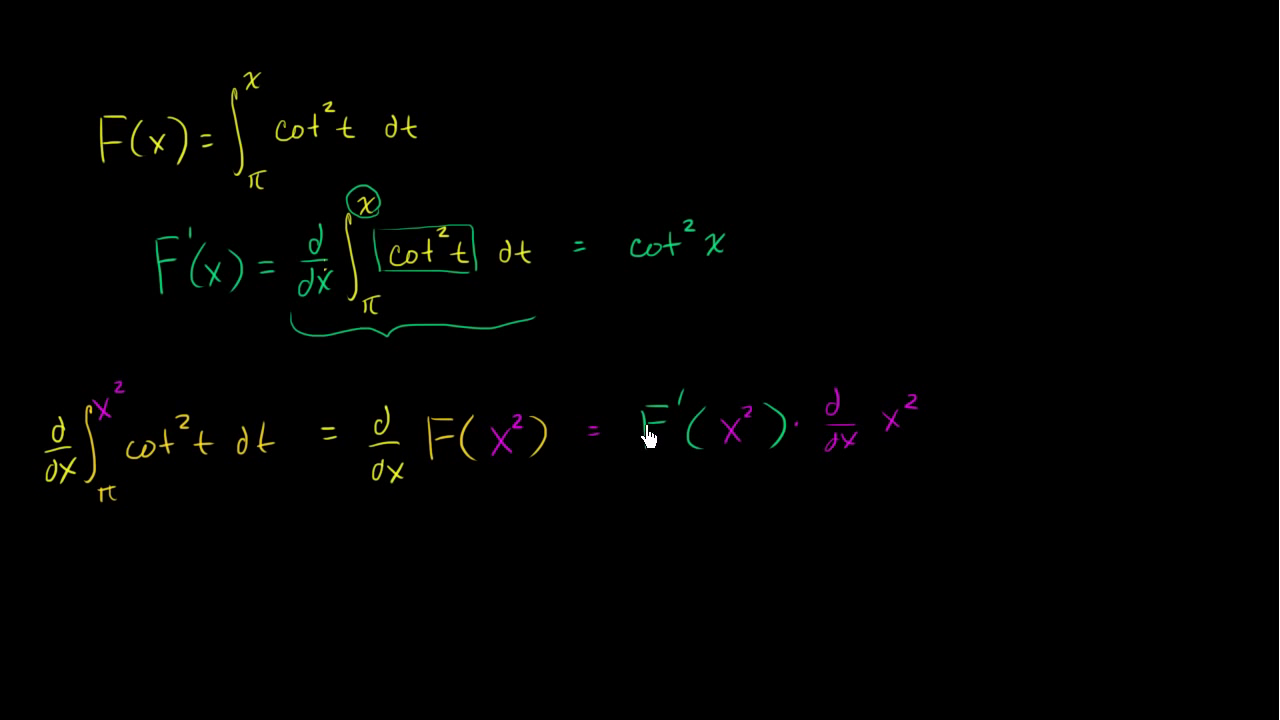 F(x) = ∫_π^x cot²t dt
F'(x) = d/dx ∫_π^x cot²t dt = cot²x
d/dx ∫_π^x² cot²t dt = d/dx F(x²) = F'(x²) · d/dx x²